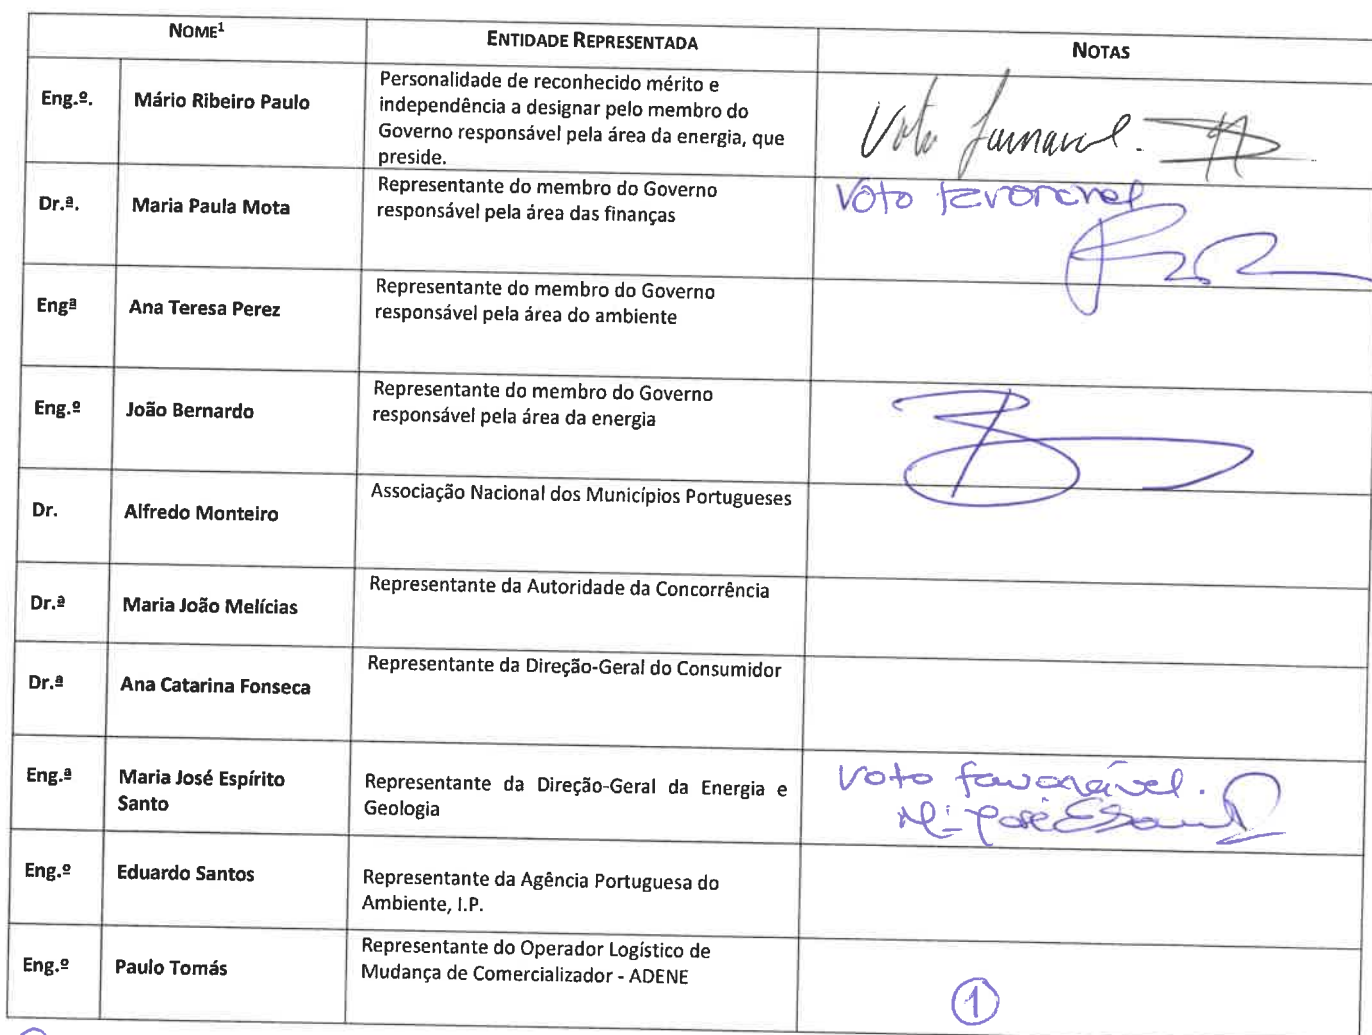 NOME¹
ENTIDADE REPRESENTADA
NOTAS
Eng.º.
Mário Ribeiro Paulo
Personalidade de reconhecido mérito e
independência a designar pelo membro do
Governo responsável pela área da energia, que
preside.
Voto favorável.
Dr.ª.
Maria Paula Mota
Representante do membro do Governo
responsável pela área das finanças
Voto favorável
Engª
Ana Teresa Perez
Representante do membro do Governo
responsável pela área do ambiente
Eng.º
João Bernardo
Representante do membro do Governo
responsável pela área da energia
Dr.
Alfredo Monteiro
Associação Nacional dos Municípios Portugueses
Dr.ª
Maria João Melícias
Representante da Autoridade da Concorrência
Dr.ª
Ana Catarina Fonseca
Representante da Direção-Geral do Consumidor
Eng.ª
Maria José Espírito
Santo
Representante da Direção-Geral da Energia e
Geologia
Voto favorável.
Eng.º
Eduardo Santos
Representante da Agência Portuguesa do
Ambiente, I.P.
Eng.º
Paulo Tomás
Representante do Operador Logístico de
Mudança de Comercializador - ADENE
1